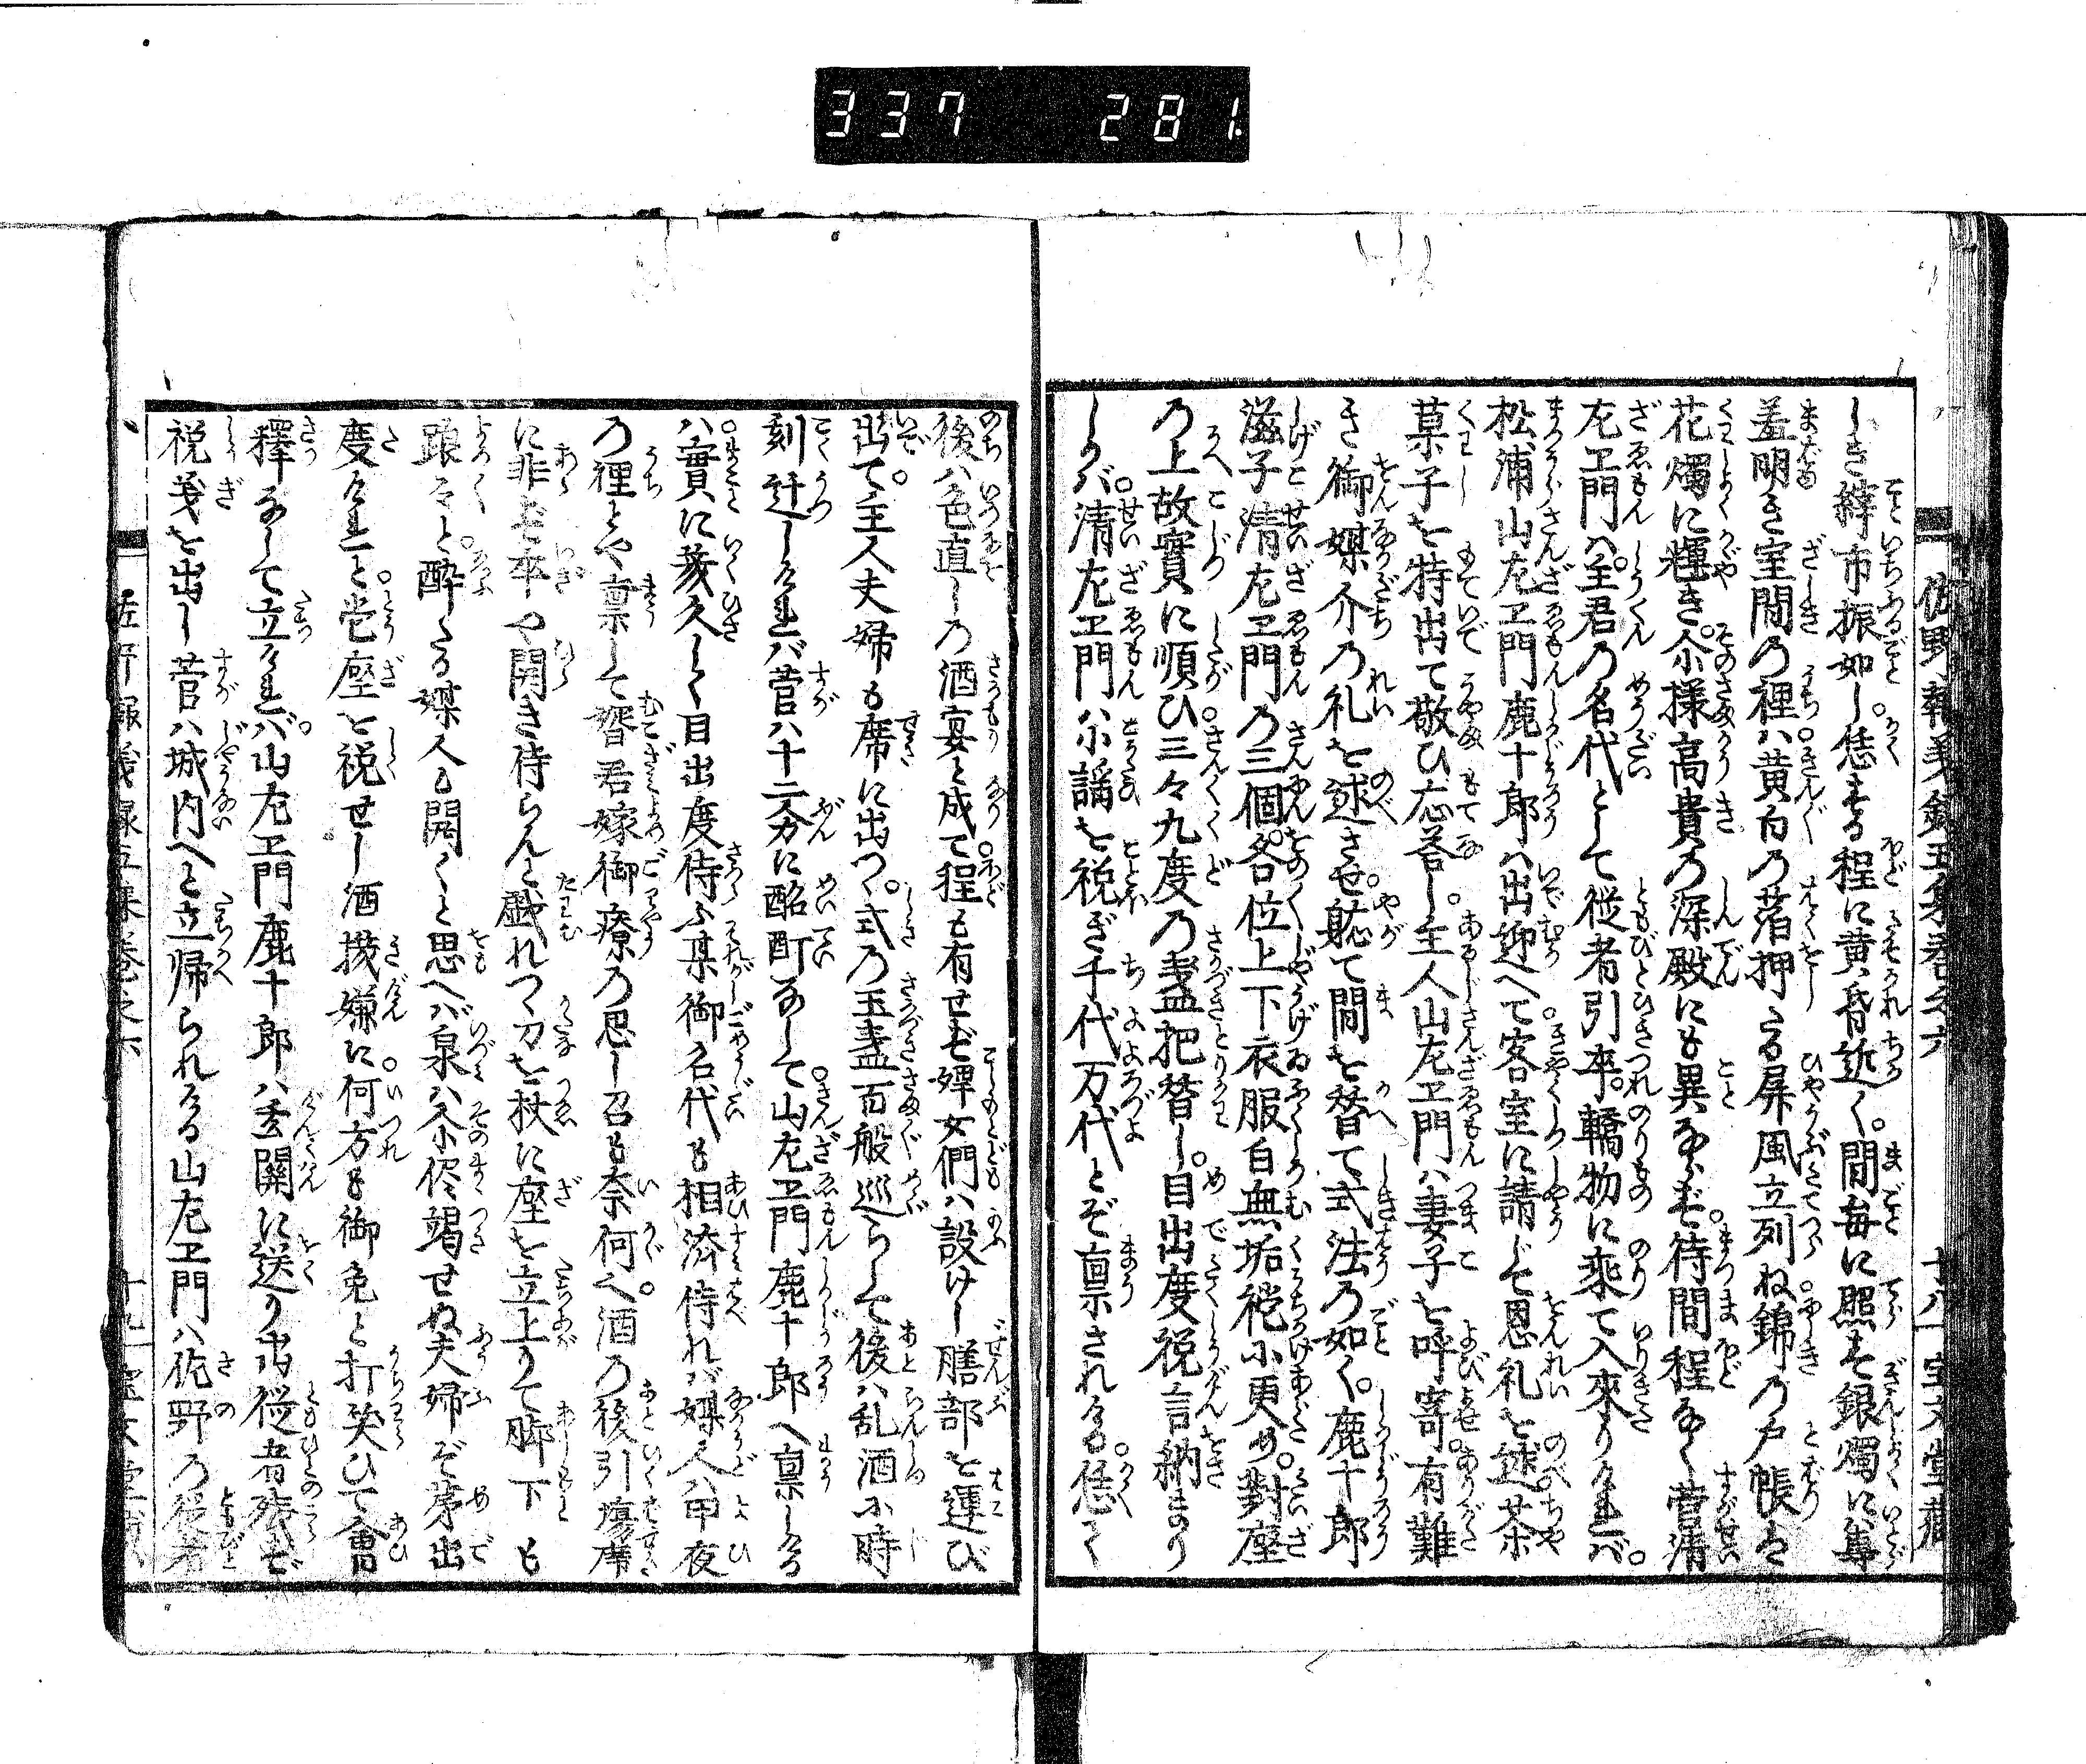 337 281
しき縡市振如し。恁する程に黄昏近く。間毎に照す銀燭に隼
羞明き室間の裡ハ黄白の箔押たる屏風立列ね錦の戸帳は
花燭に輝き。尒様高貴の深殿にも異ならず。待間程なく菅清
左エ門ハ。主君の名代として従者引卒。轎物に乗て入来りければ。
松浦山左エ門鹿十郎ハ出迎へて客室に請じて恩礼を述茶
菓子を特出て敬ひ応荅し。主人山左エ門ハ妻子を呼寄。有難
き御媒介の礼を述させ。軈て間を替て式法の如く。鹿十郎
滋子清左エ門の三個。各位上下衣服白無垢襠に更め。對座
の上故實に順ひ三々九度の盞把替し。目出度祝言納まり
しかバ。清左エ門ハ小謡を祝ぎ千代万代とぞ禀されける。恁て
後ハ色直しの酒宴と成て。程も有せず婢女們ハ設けし膳部を運び
出て。主人夫婦も席に出つ。式の玉盞百般巡らして後ハ乱酒に時
刻迁しけれバ菅ハ十二分に酩酊なして。山左エ門鹿十郎へ禀しける
ハ。實に幾久しく目出度侍ふ某御名代も相済侍れバ媒人ハ甲夜
の裡とや禀して壻君嫁御療の思し召も奈何へ。酒の後引瘍席
に非ず卒や開き侍らんと戯れつつ刀を杖に座を立上りて脚下も
踉々と。酔たる媒人も開くと思へバ泉ハ尒侭竭せぬ夫婦ぞ芽出
度けれと。当座を祝せし酒機嫌に。何方も御免と打笑ひて會
釋なして立けれバ。山左エ門鹿十郎ハ玄關に送り出従者残で
祝義を出し菅ハ城内へと立帰られける山左エ門ハ佐野の従者
佐野報義録五編巻之六 十八 宝文堂蔵
佐野報義録五編巻之六 十九 宝文堂蔵